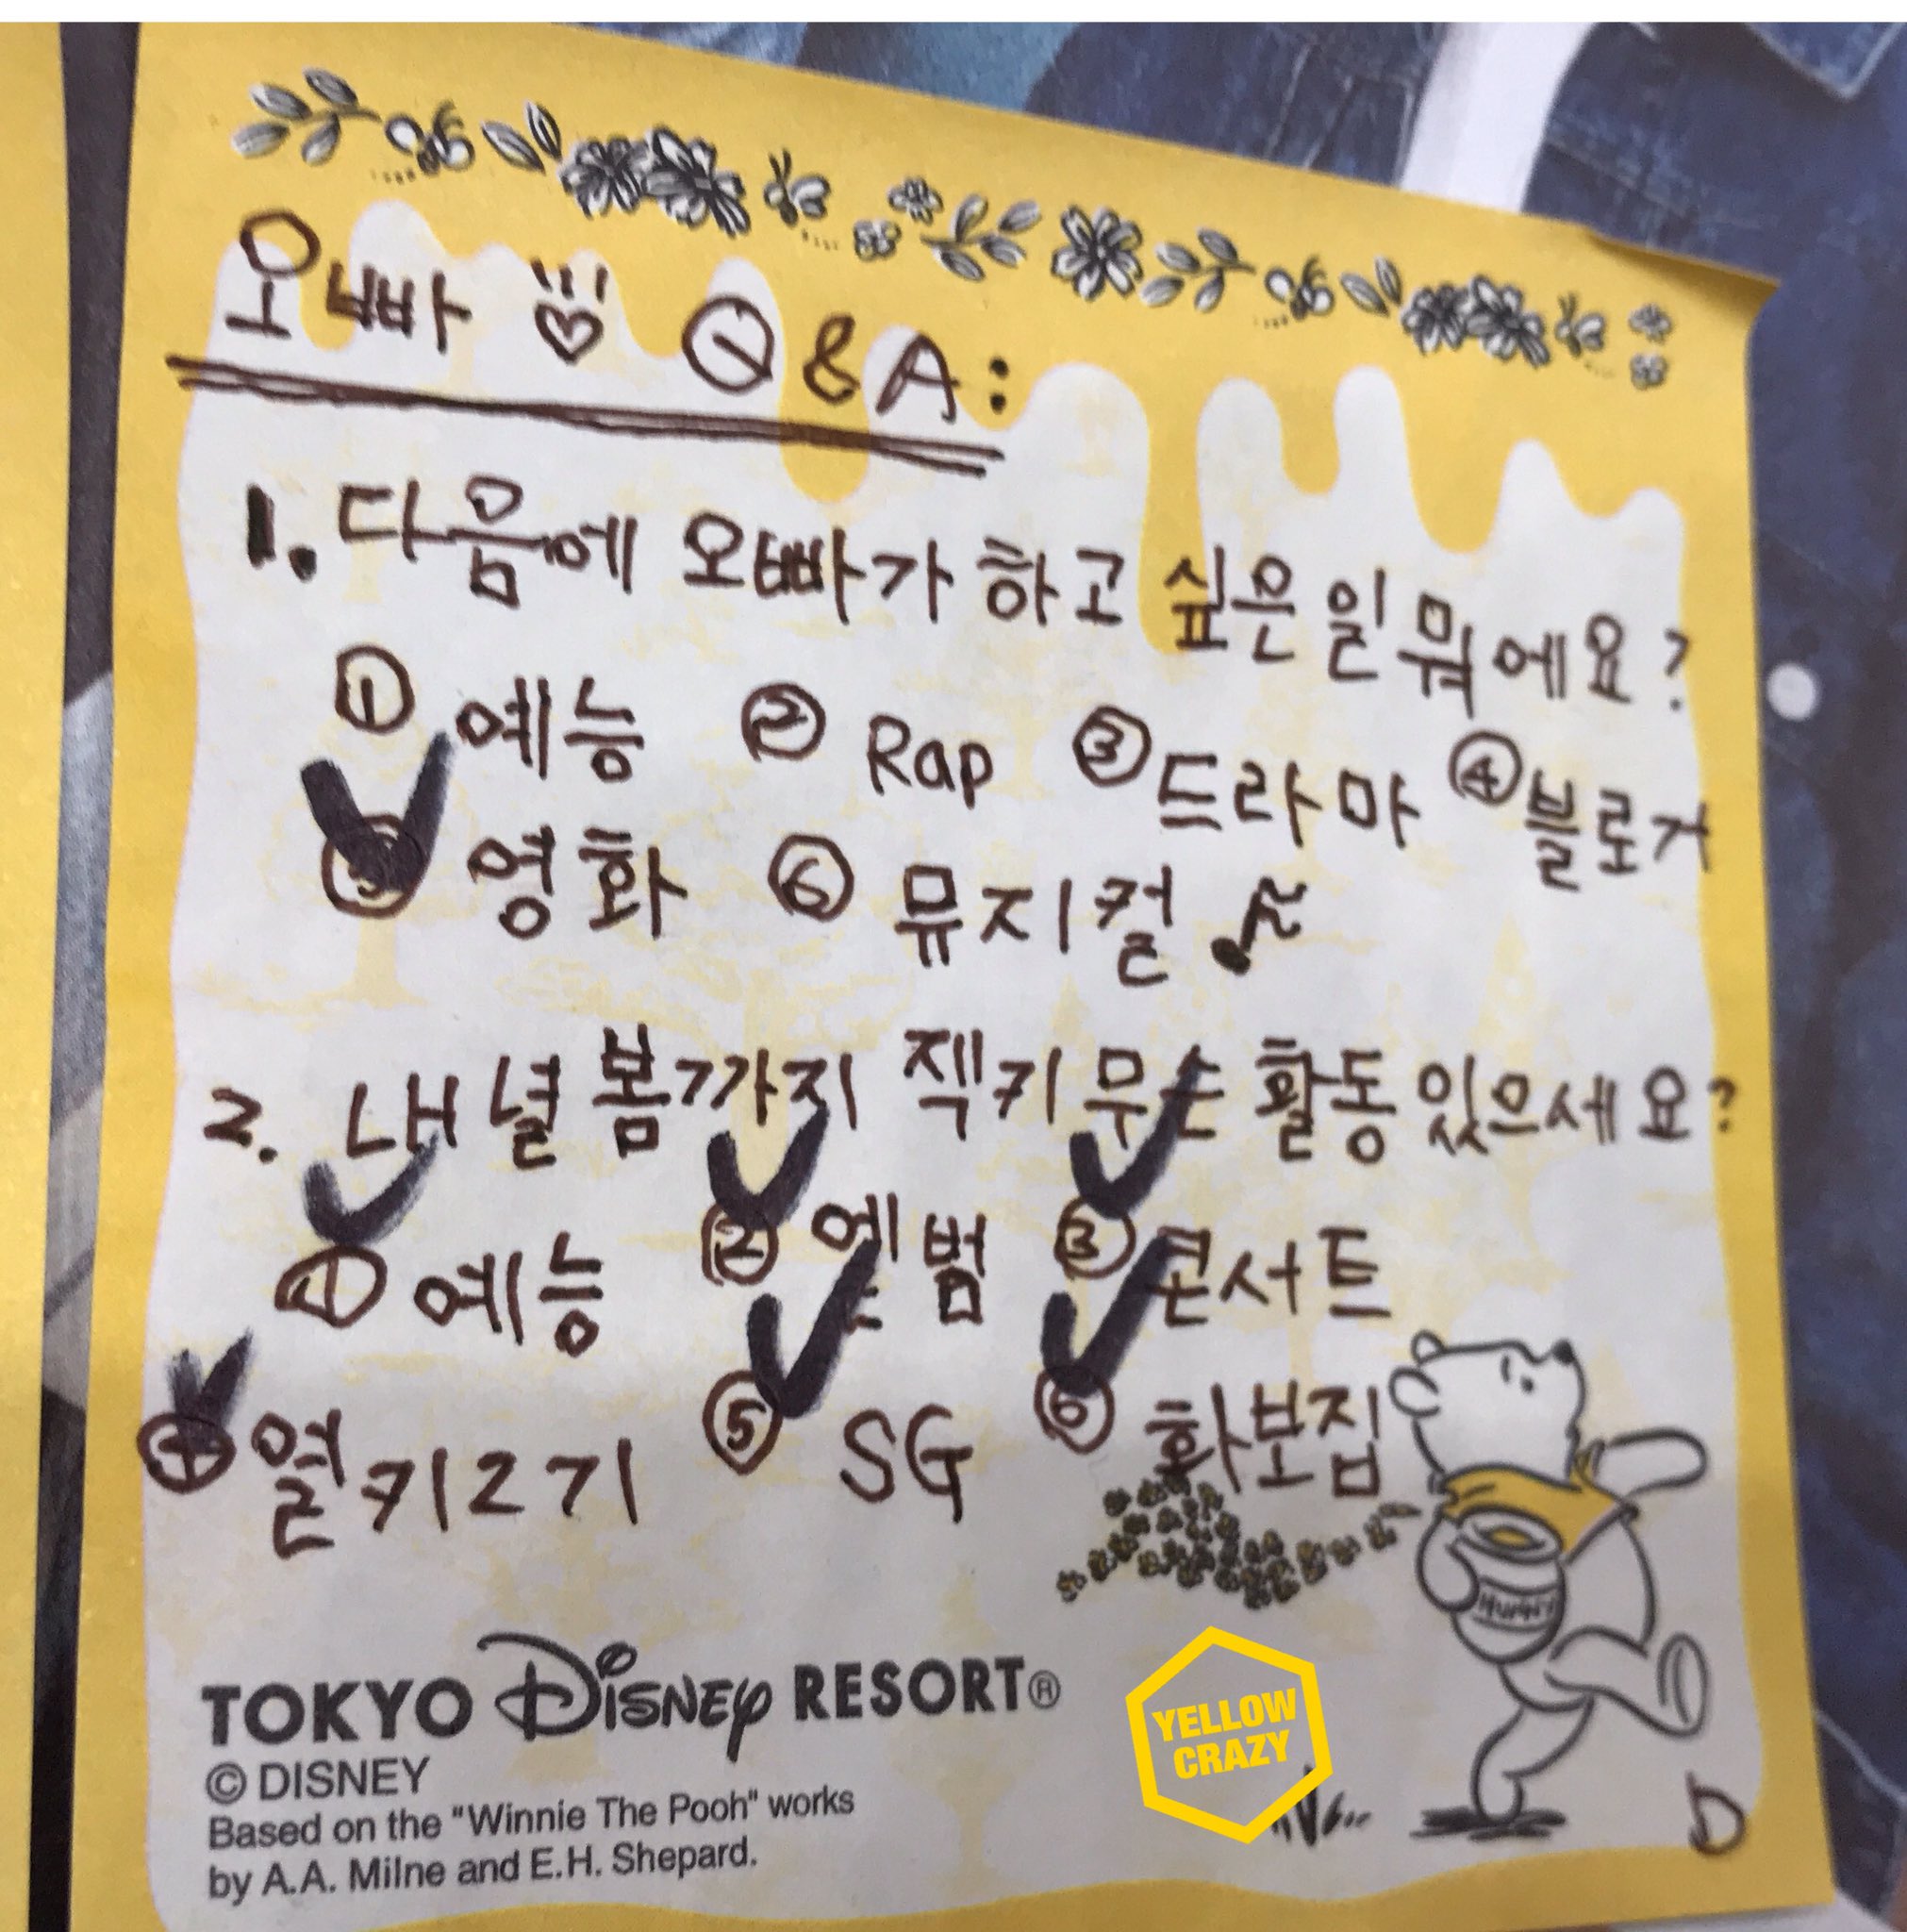 오빠 Q & A :
1. 다음에 오빠가 하고 싶은 일 뭐에요?
① 예능 ② Rap ③ 드라마 ④ 블로거
⑤ 영화 ⑥ 뮤지컬
2. 내년 봄까지 젝키 무슨 활동 있으세요?
① 예능 ② 앨범 ③ 콘서트
④ 열키2기 ⑤ SG ⑥ 화보집
HUNNY
TOKYO DISNEY RESORT®
© DISNEY
Based on the "Winnie The Pooh" works
by A.A. Milne and E.H. Shepard.
YELLOW
CRAZY
D